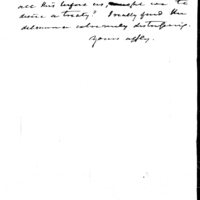 all this before us, can to
devise a treaty? I really find the
dilemma extremely disturbing.
Yours affly.